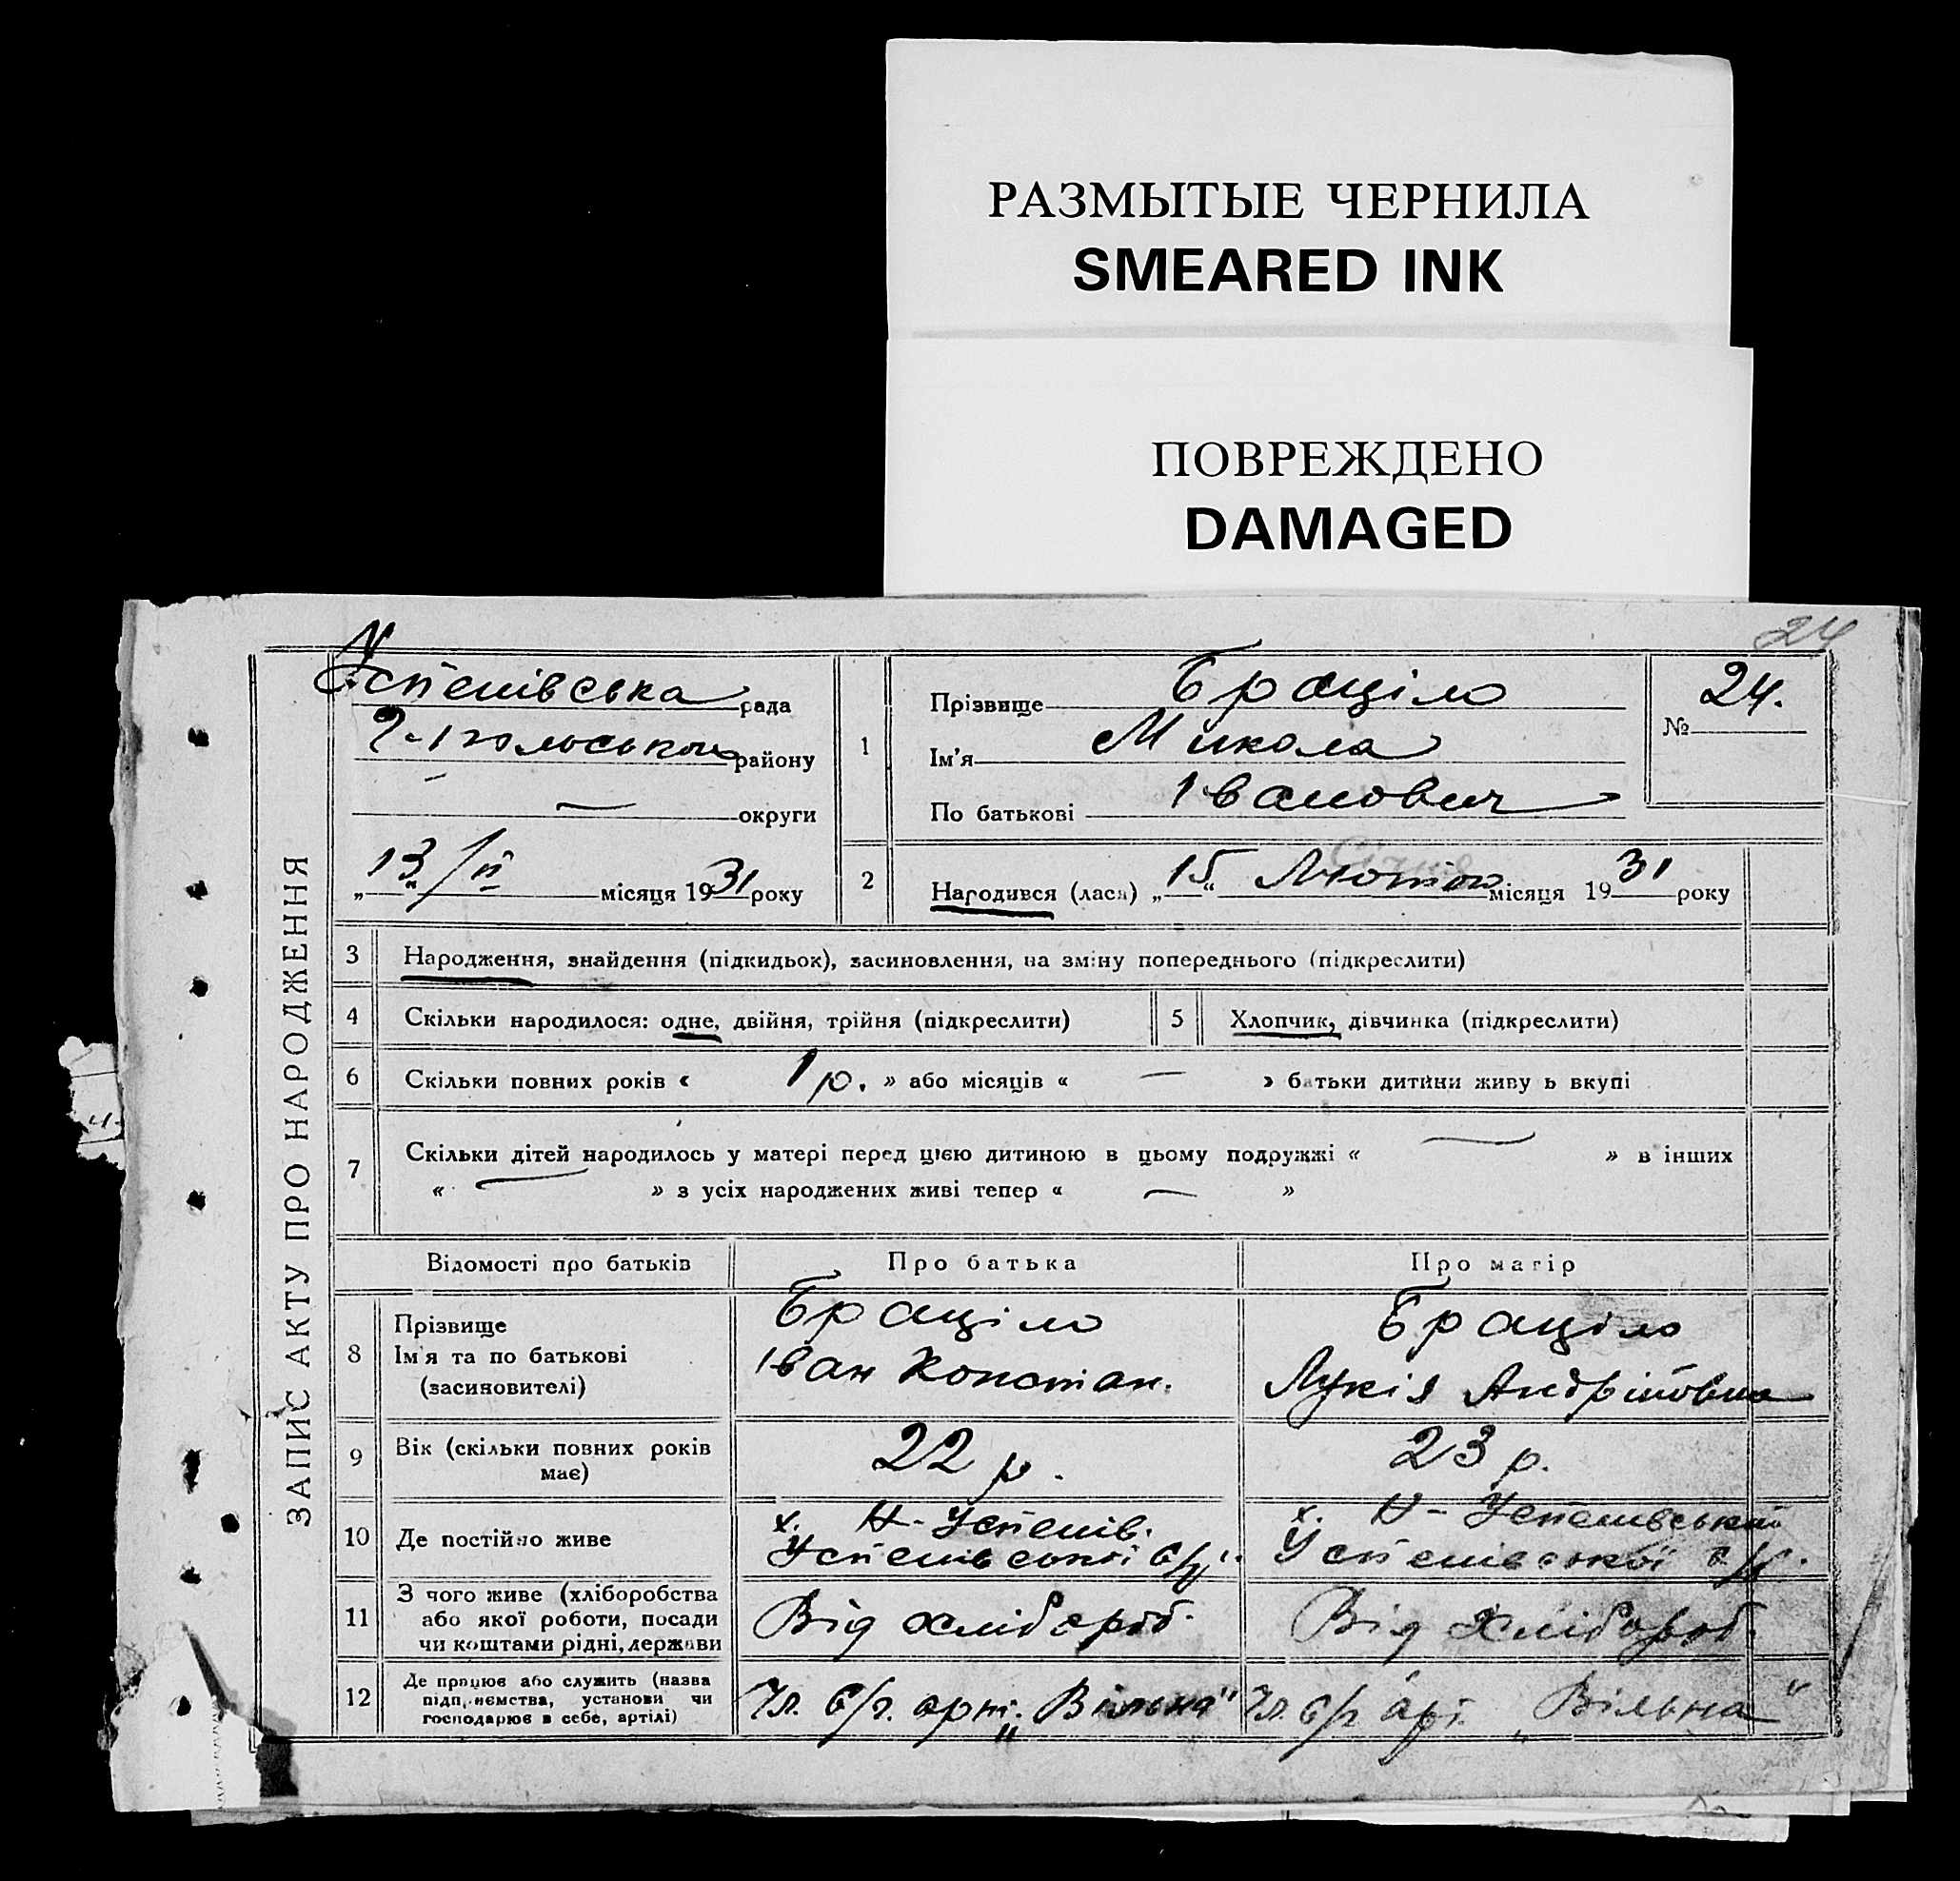 РАЗМЫТЫЕ ЧЕРНИЛА
SMEARED INK
ПОВРЕЖДЕНО
DAMAGED
24
ЗАПИС АКТУ ПРО НАРОДЖЕННЯ
Успенівська рада
району
— округи
„13“/II місяця 1931 року
1
Прізвище Браціло
Ім'я Микола
По батькові Іванович
№ 24.
2
Народився (лася) „15“ Лютого місяця 1931 року
3 Народження, знайдення (підкидьок), засиновлення, на зміну попереднього (підкреслити)
4 Скільки народилося: одне, двійня, трійня (підкреслити)
5 Хлопчик, дівчинка (підкреслити)
6 Скільки повних років « 1 р. » або місяців « — » батьки дитини живуть вкупі
7 Скільки дітей народилось у матері перед цією дитиною в цьому подружжі « — » в інших
« — » з усіх народжених живі тепер « — »
Відомості про батьків Про батька Про матір
8 Прізвище
Ім'я та по батькові
(засиновителі)
Браціло
Іван Констан.
Браціло
Лукія Андріївна
9 Вік (скільки повних років
має)
22 р.
23 р.
10 Де постійно живе
х. Н-Успенів.
Успенівської с/р.
х. Н-Успенівський
Успенівської с/р.
11 З чого живе (хліборобства
або якої роботи, посади
чи коштами рідні, держави
Від хлібороб.
Від хлібороб.
12 Де працює або служить (назва
підприємства, установи чи
господарює в себе, артілі)
Чл. с/г. арт. „Вільна“
Чл. с/г арт. „Вільна“